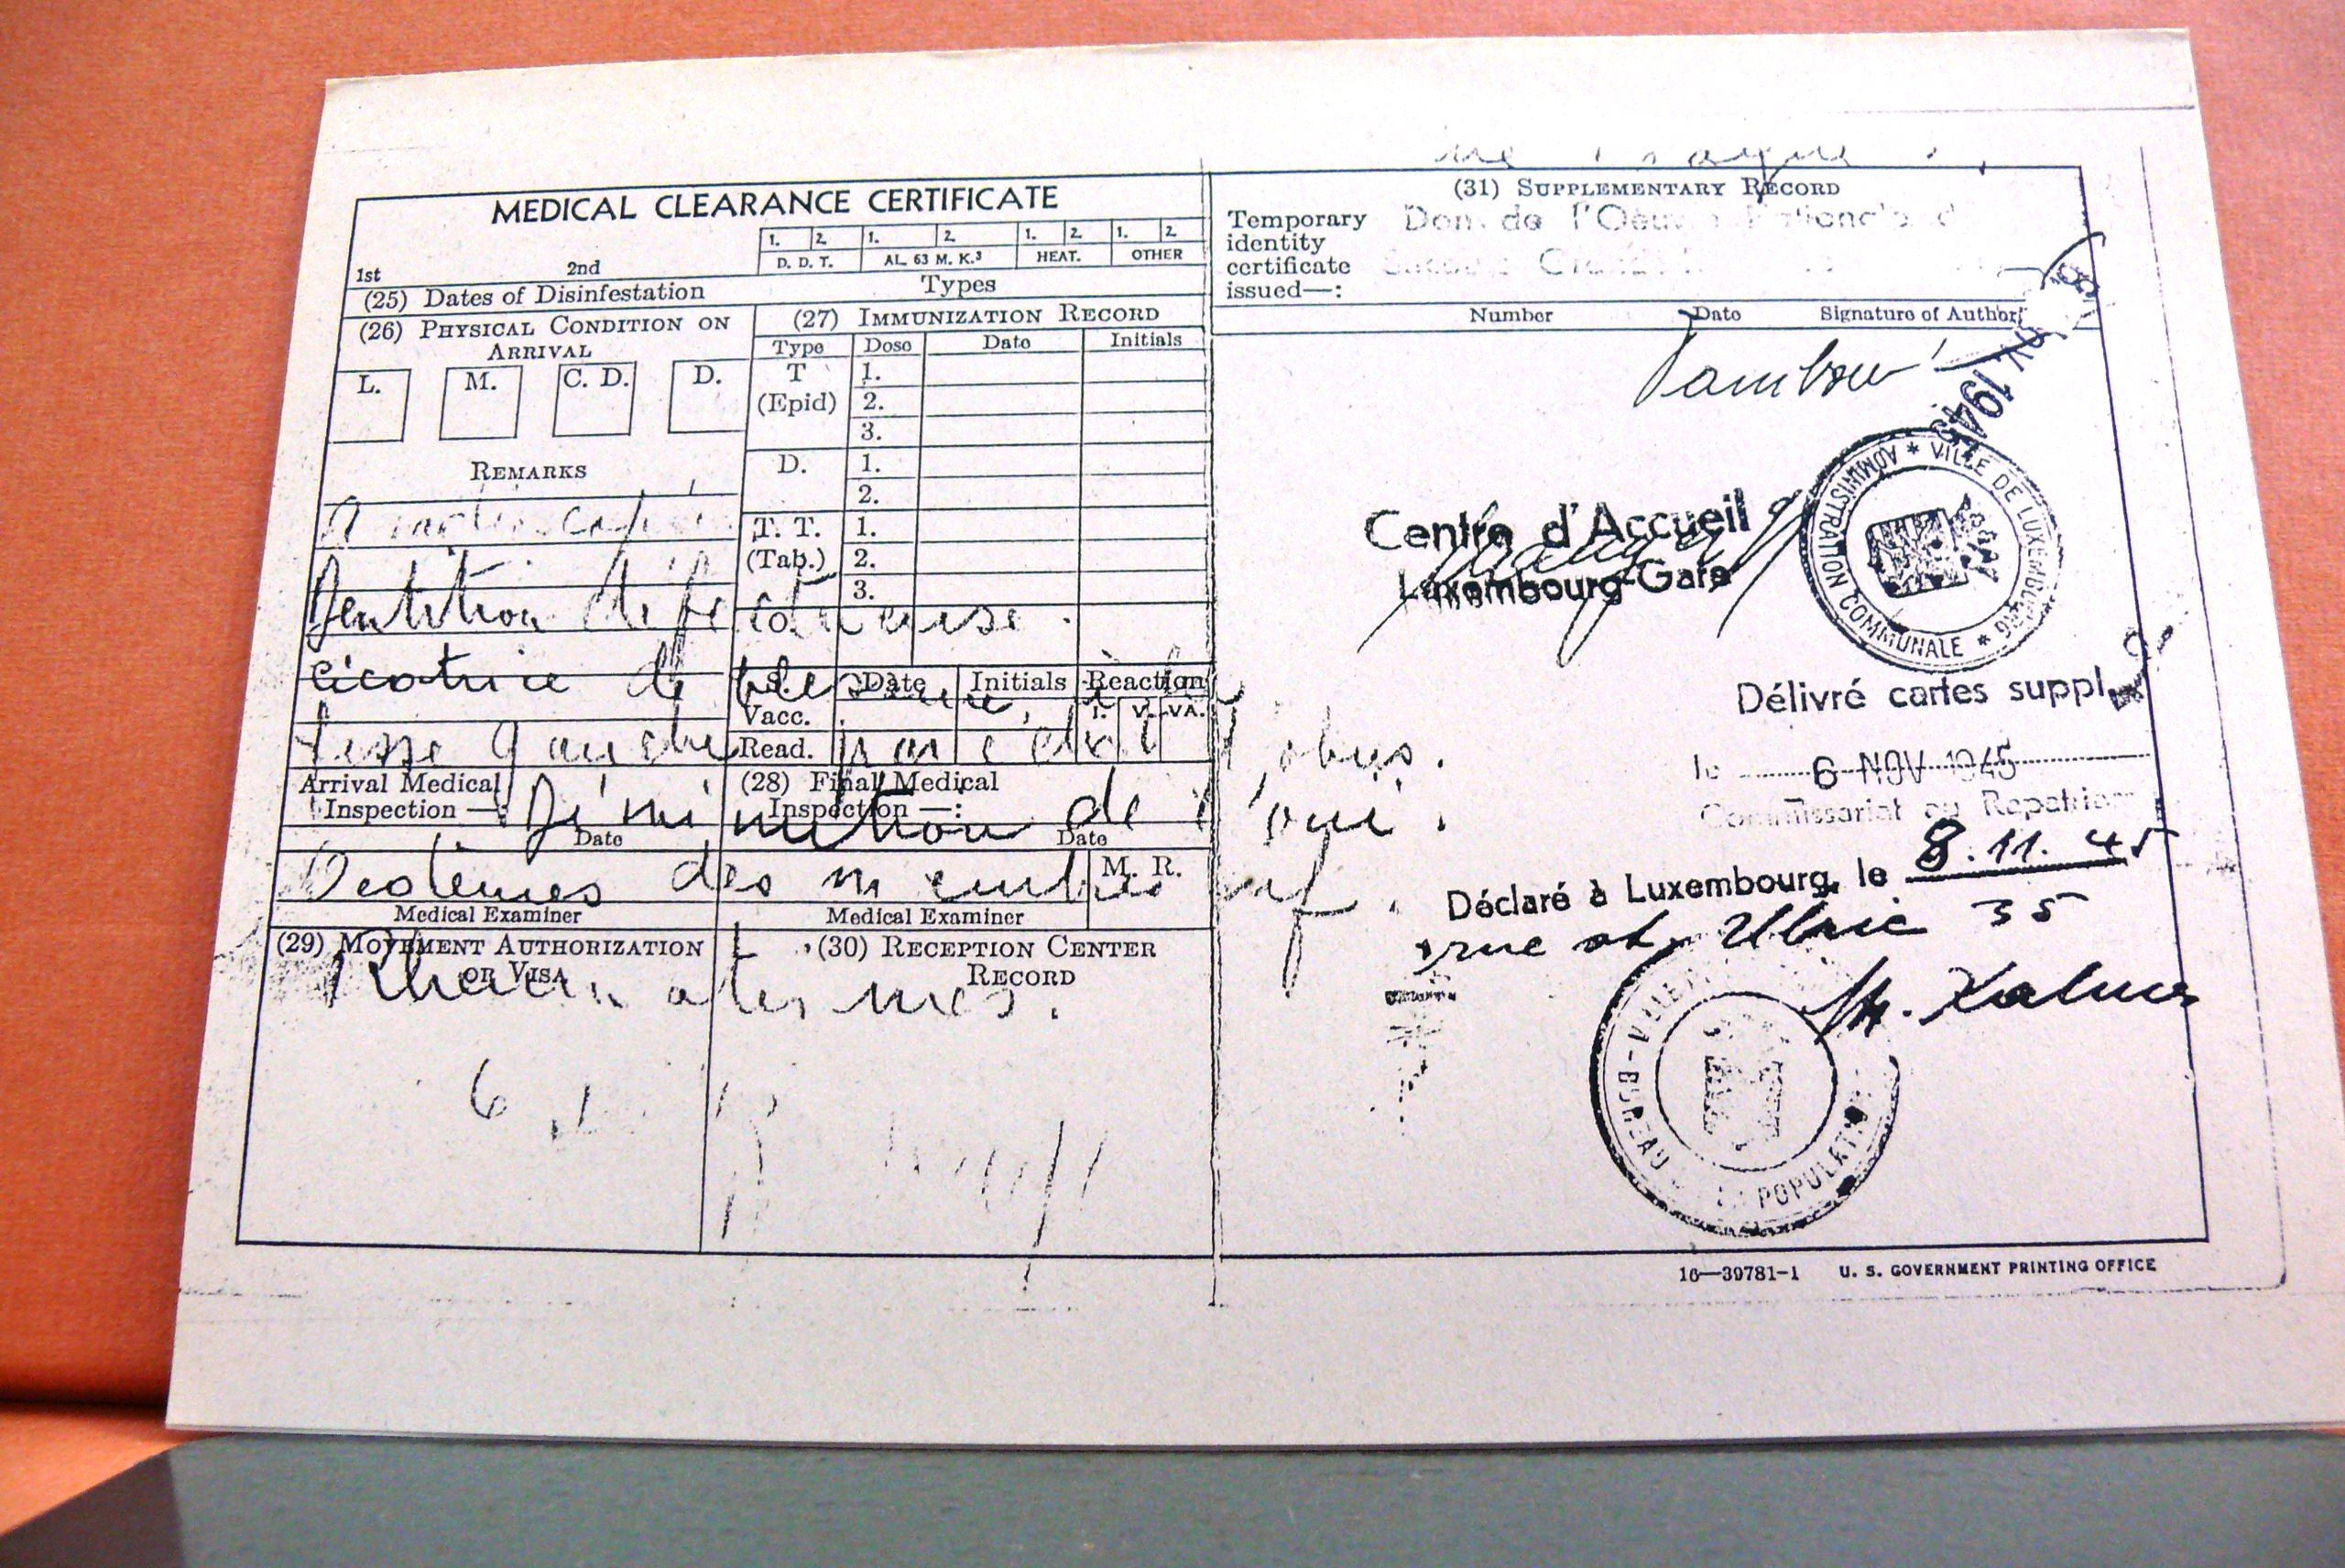 MEDICAL CLEARANCE CERTIFICATE
1. 2. 1. 2. 1. 2. 1. 2.
1st 2nd D. D. T. AL. 63 M. K.³ HEAT. OTHER
(25) Dates of Disinfestation Types
(26) PHYSICAL CONDITION ON
ARRIVAL
L. M. C. D. D.
REMARKS
Dentition défectueuse.
cicatrice de blessure
fesse gauche par éclat d'obus.
Diminution de l'ouie.
Oedèmes des membres inf.
Rhumatismes.
(27) IMMUNIZATION RECORD
Type Dose Date Initials
T 1.
(Epid) 2.
3.
D. 1.
2.
T. T. 1.
(Tab.) 2.
3.
S. Date Initials Reaction
Vacc. I. V. VA.
Read.
Arrival Medical
Inspection —:
Date
Medical Examiner
(28) Final Medical
Inspection —:
Date
M. R.
Medical Examiner
(29) MOVEMENT AUTHORIZATION
OR VISA
(30) RECEPTION CENTER
RECORD
(31) SUPPLEMENTARY RECORD
Temporary
identity
certificate
issued—:
Don de l'Oeuvre Nationale d
Secours
Number Date Signature of Authority
NOV 1945
Centre d'Accueil
Luxembourg-Gare
* VILLE DE LUXEMBOURG * ADMINISTRATION COMMUNALE
Délivré cartes suppl.
le 6 NOV 1945
Commissariat au Rapatriem
Déclaré à Luxembourg, le 8.11.45
rue st. Ulric 35
VILLE BUREAU POPULATION
16—39781-1 U. S. GOVERNMENT PRINTING OFFICE